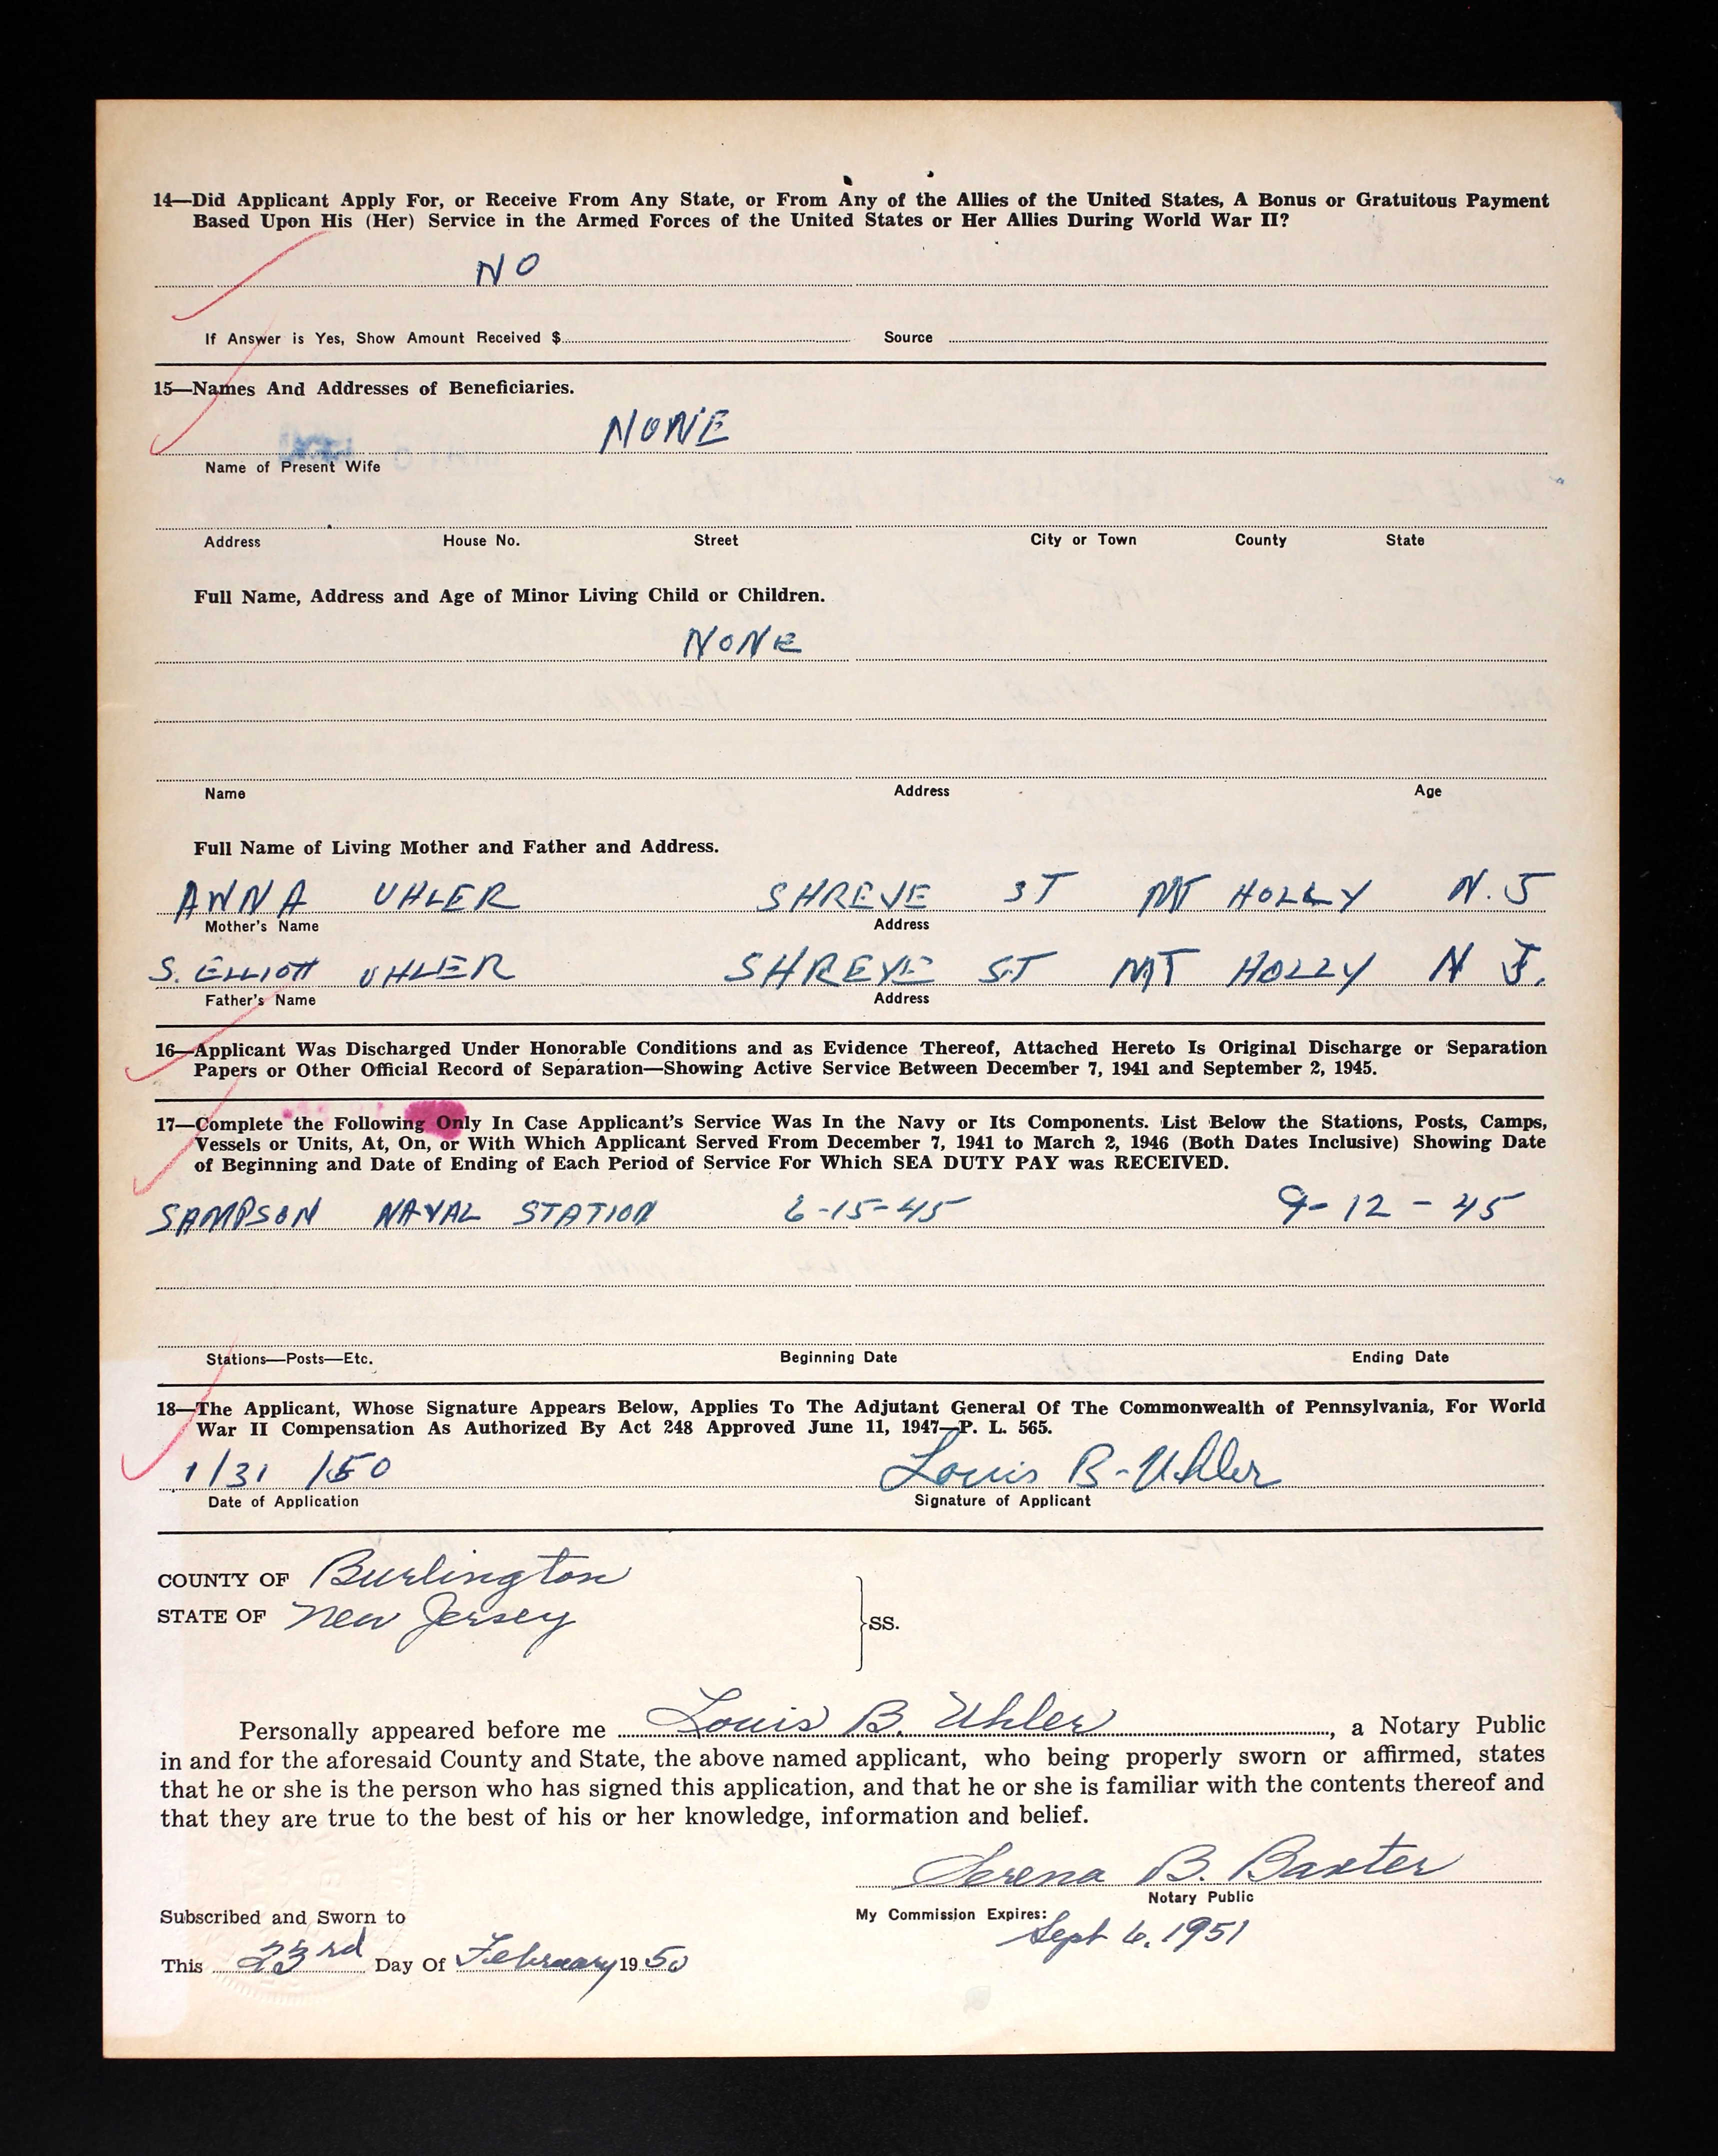 14—Did Applicant Apply For, or Receive From Any State, or From Any of the Allies of the United States, A Bonus or Gratuitous Payment
Based Upon His (Her) Service in the Armed Forces of the United States or Her Allies During World War II?
NO
If Answer is Yes, Show Amount Received $ Source
15—Names And Addresses of Beneficiaries.
NONE
Name of Present Wife
Address House No. Street City or Town County State
Full Name, Address and Age of Minor Living Child or Children.
NONE
Name Address Age
Full Name of Living Mother and Father and Address.
ANNA UHLER SHREVE ST MT HOLLY N.J
Mother's Name Address
S. ELLIOTT UHLER SHREVE ST MT HOLLY N J.
Father's Name Address
16—Applicant Was Discharged Under Honorable Conditions and as Evidence Thereof, Attached Hereto Is Original Discharge or Separation
Papers or Other Official Record of Separation—Showing Active Service Between December 7, 1941 and September 2, 1945.
17—Complete the Following Only In Case Applicant's Service Was In the Navy or Its Components. List Below the Stations, Posts, Camps,
Vessels or Units, At, On, or With Which Applicant Served From December 7, 1941 to March 2, 1946 (Both Dates Inclusive) Showing Date
of Beginning and Date of Ending of Each Period of Service For Which SEA DUTY PAY was RECEIVED.
SAMPSON NAVAL STATION 6-15-45 9-12-45
Stations—Posts—Etc. Beginning Date Ending Date
18—The Applicant, Whose Signature Appears Below, Applies To The Adjutant General Of The Commonwealth of Pennsylvania, For World
War II Compensation As Authorized By Act 248 Approved June 11, 1947—P. L. 565.
1/31/50 Louis B-Uhler
Date of Application Signature of Applicant
COUNTY OF Burlington
STATE OF New Jersey SS.
Personally appeared before me Louis B. Uhler, a Notary Public
in and for the aforesaid County and State, the above named applicant, who being properly sworn or affirmed, states
that he or she is the person who has signed this application, and that he or she is familiar with the contents thereof and
that they are true to the best of his or her knowledge, information and belief.
Serena B. Baxter
Notary Public
Subscribed and Sworn to My Commission Expires:
Sept 6, 1951
This 23rd Day Of February 1950